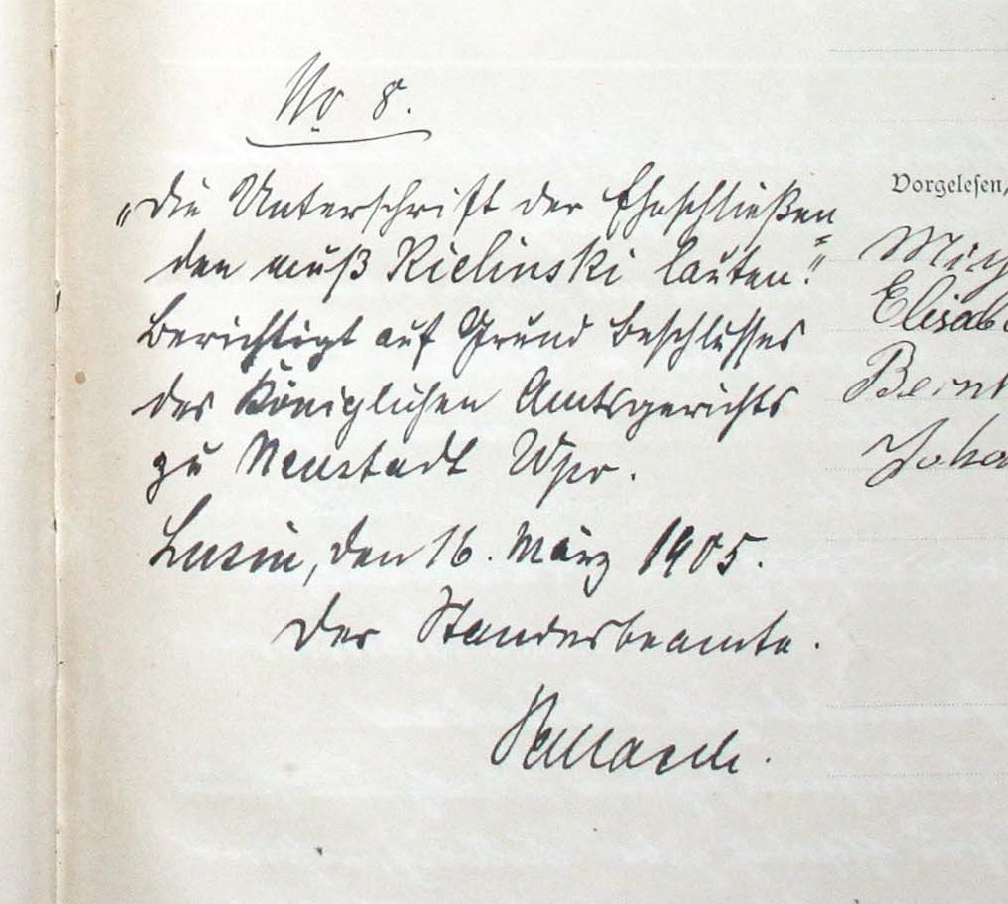 No 8.
„Die Unterschrift der Eheschließen=
den muß Kielinski lauten."
Berichtigt auf Grund Beschlusses
des Königlichen Amtsgerichts
zu Neustadt Wpr.
Lusin, den 16. März 1905.
Der Standesbeamte.
Vorgelesen,
Mich
Elisab
Bernh
Joha